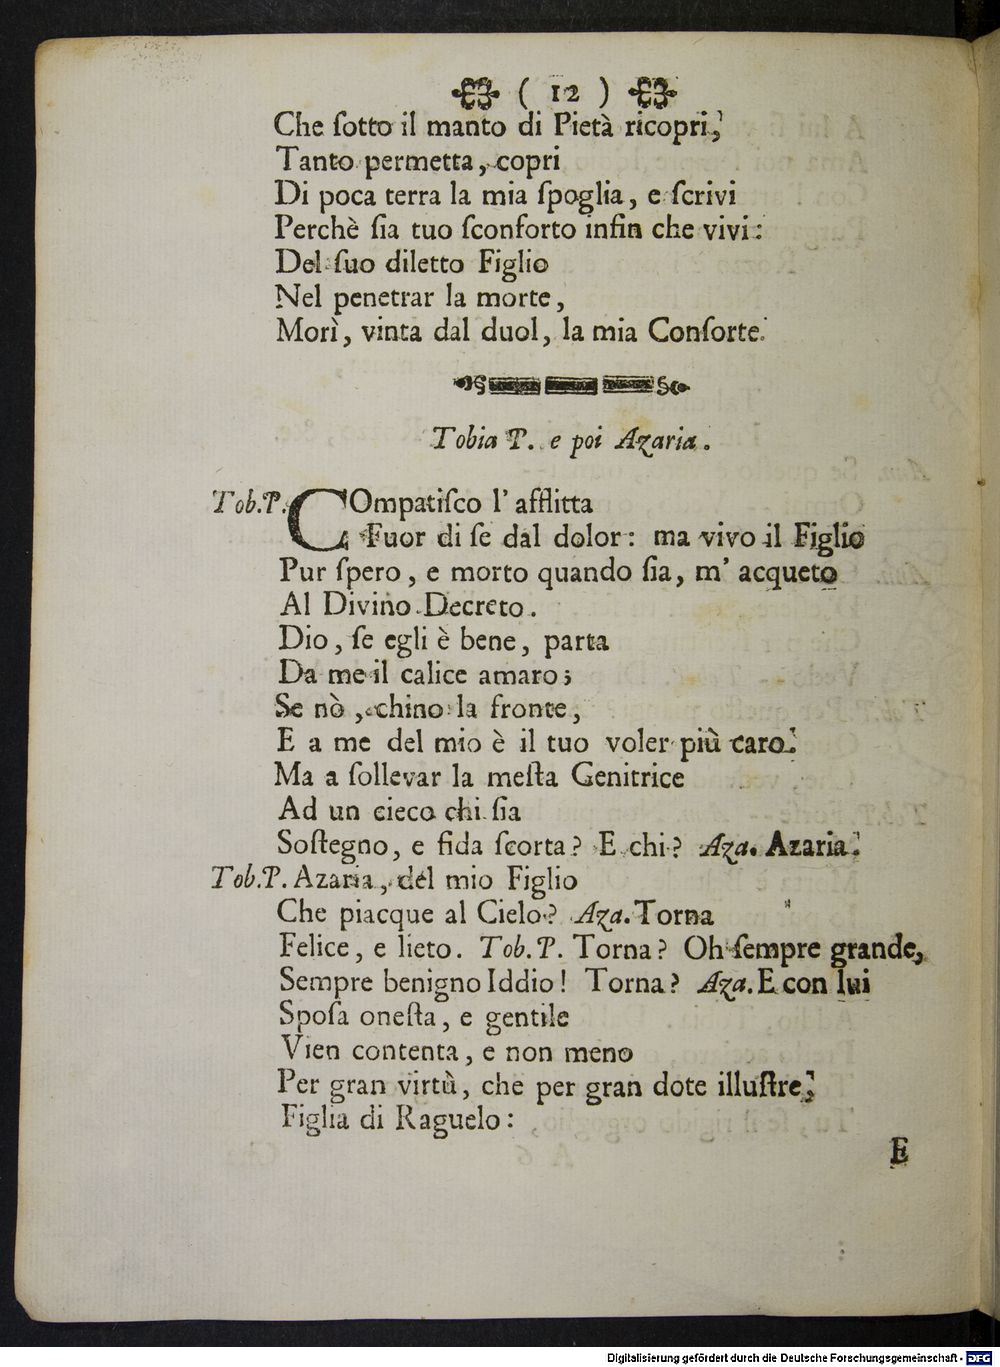 ( 12 )
Che ſotto il manto di Pietà ricopri,
Tanto permetta, copri
Di poca terra la mia ſpoglia, e ſcrivi
Perchè ſia tuo ſconforto infin che vivi:
Del ſuo diletto Figlio
Nel penetrar la morte,
Morì, vinta dal duol, la mia Conſorte.
Tobia P. e poi Azaria.
Tob.P. COmpatiſco l' afflitta
Fuor di ſe dal dolor: ma vivo il Figlio
Pur ſpero, e morto quando ſia, m' acqueto
Al Divino Decreto.
Dio, ſe egli è bene, parta
Da me il calice amaro;
Se nò, chino la fronte,
E a me del mio è il tuo voler più caro.
Ma a ſollevar la meſta Genitrice
Ad un cieco chi ſia
Soſtegno, e fida ſcorta? E chi? Aza. Azaria.
Tob.P. Azaria, del mio Figlio
Che piacque al Cielo? Aza. Torna
Felice, e lieto. Tob.P. Torna? Oh ſempre grande,
Sempre benigno Iddio! Torna? Aza. E con lui
Spoſa oneſta, e gentile
Vien contenta, e non meno
Per gran virtù, che per gran dote illuſtre,
Figlia di Raguelo:
E
Digitalisierung gefördert durch die Deutsche Forschungsgemeinschaft - DFG